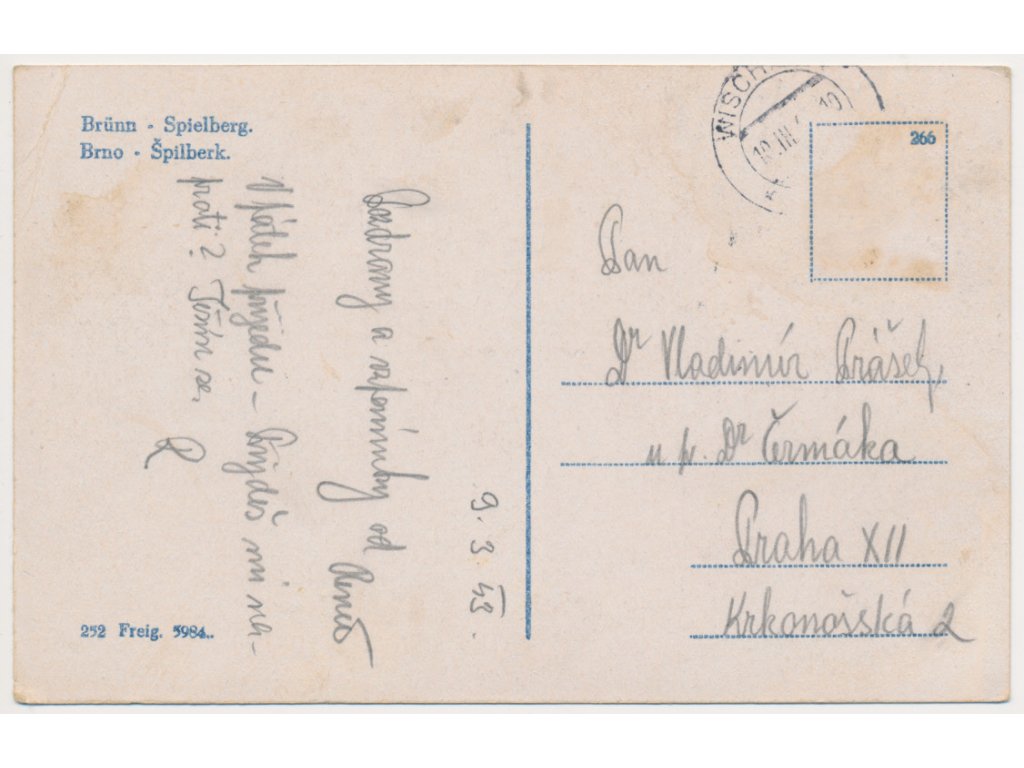 Brünn - Spielberg.
Brno - Špilberk.
9. 3. 43.
Pozdravy a vzpomínky od
V pátek přijedu - Přijdeš mi na-
proti? Těším se.
R
252 Freig. 5984..
WISCH
10. III. 10
266
Pan
Dr Vladimír Prášek,
u p. Dr Čermáka
Praha XII
Krkonošská 2